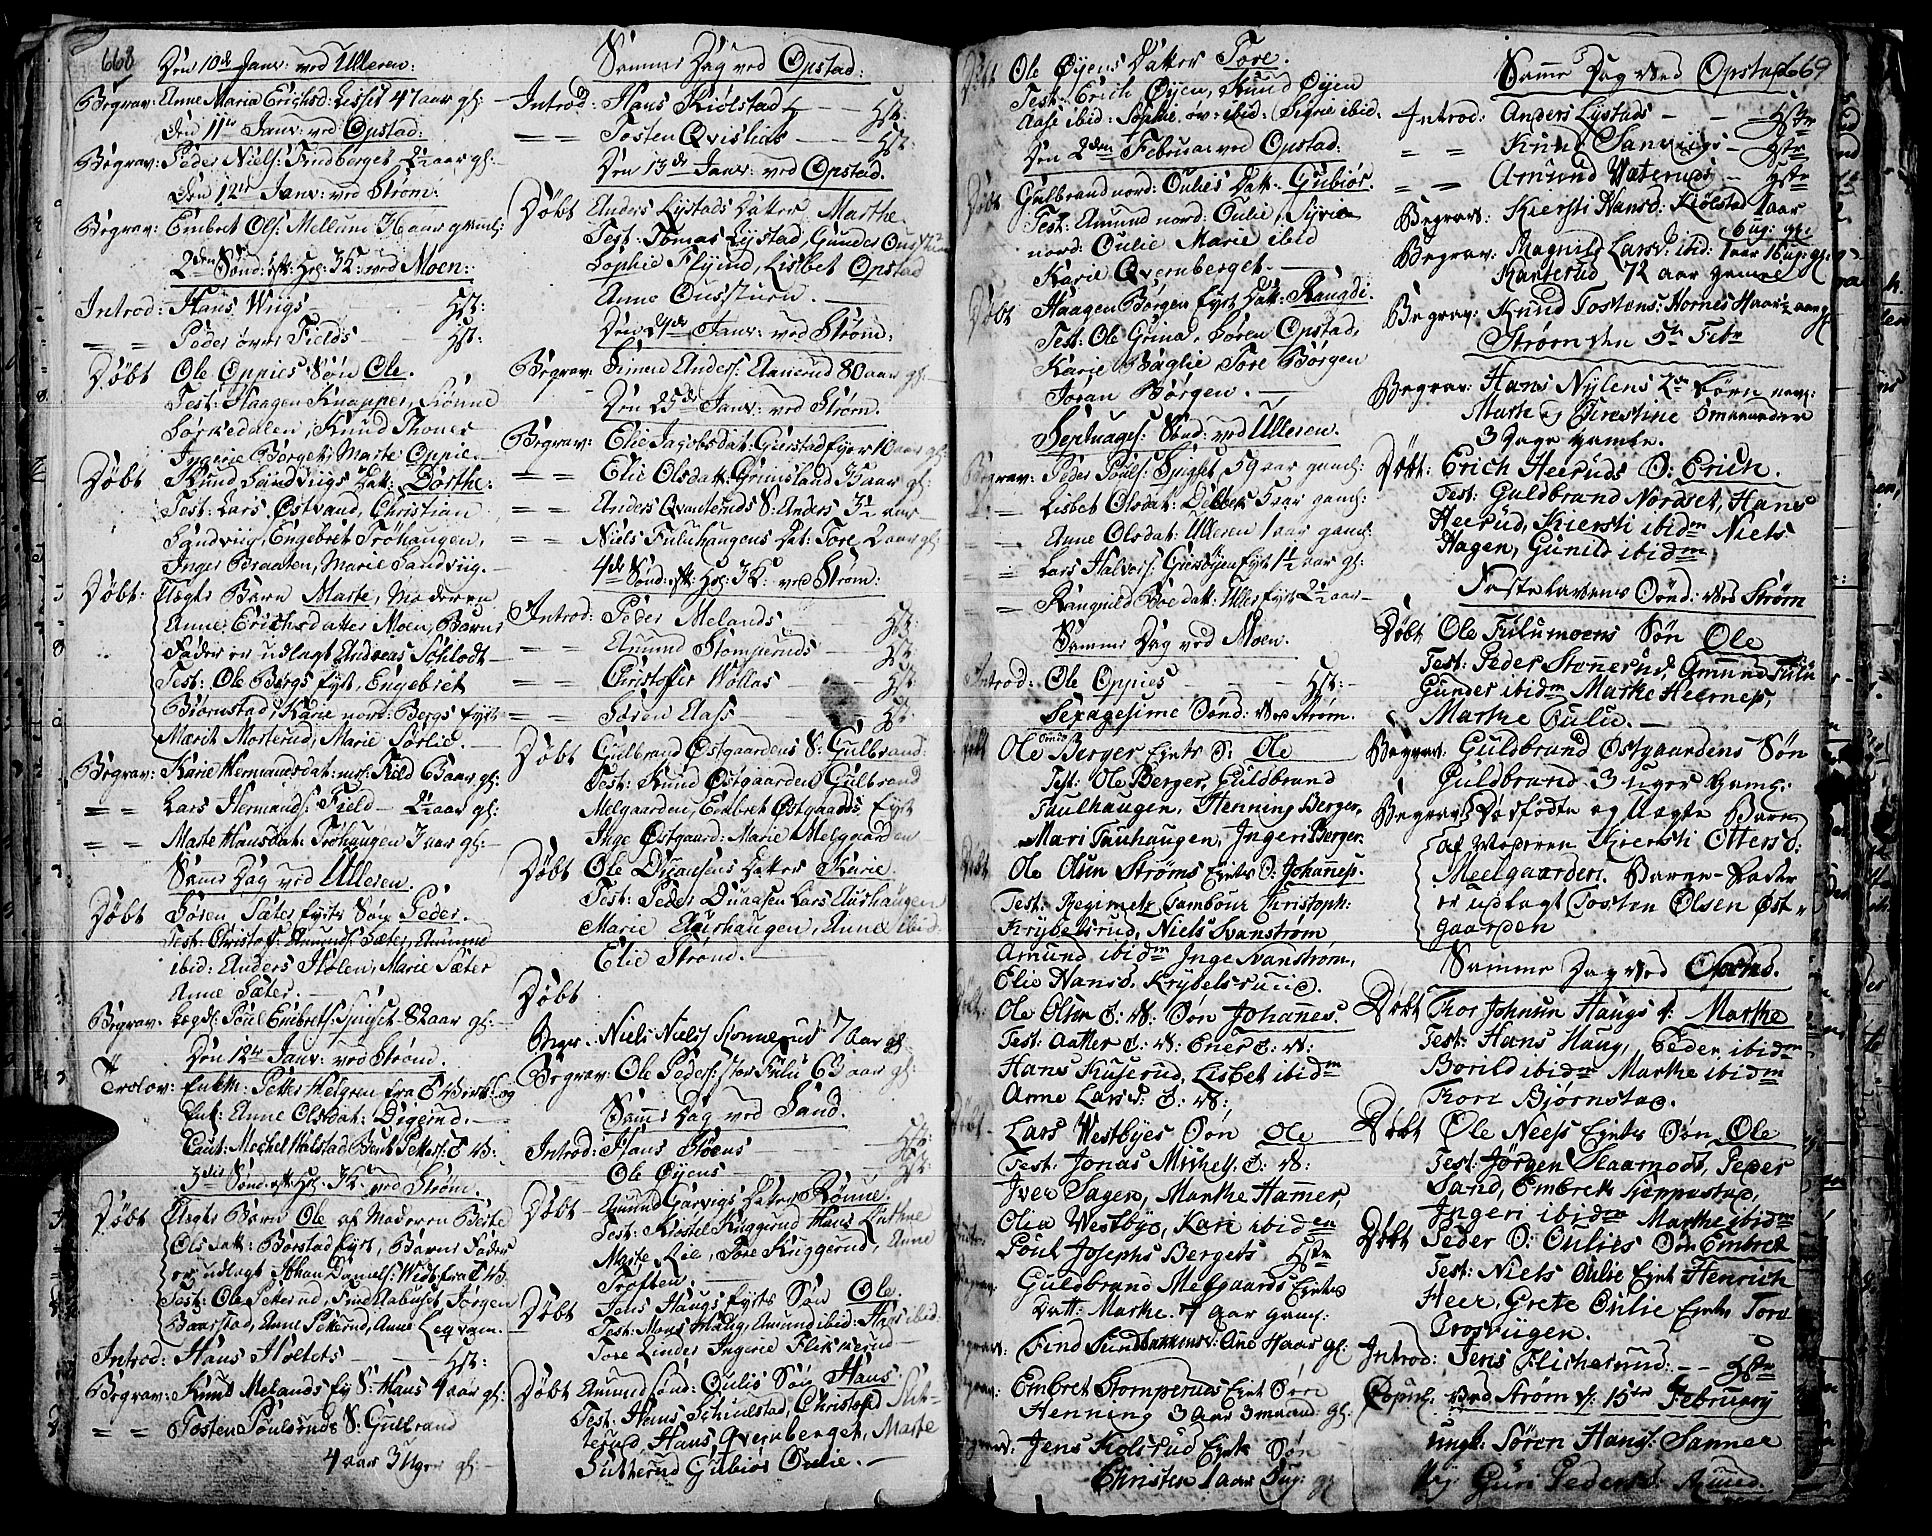 668
Den 10de Janv: ved Ulleren:
Begrav: Anne Maria Erichsd: Lisset 47 aar gl:
Den 11te Janv: ved Opstad:
Begrav: Peder Niels: Findberget 2½ aar gl:
Den 12te Janv: ved Strøm:
Begrav: Embret Ols: Mellum 36 aar gamel:
2den Sønd: eft: Hel: 3K: ved Moen:
Introd: Hans Wiigs Hst:
= = Peder øvre Fields Hst:
Døbt Ole Oppies Søn Ole.
Test: Haagen Knapper, Rønne
Sørkedalen, Knud Thoner
Ingerie Berget, Marte Oppie.
Døbt Knud Sandviigs Dat: Dorthe:
Test: Lars Østvand, Christian
Sandviig, Engebret Trøhaugen,
Inger Braaten, Marie Sandviig.
Døbt: Uægte Barn Marte, Moderen
Anne Erichsdatter Moen, Barne
Fader er udlagt Andreas Schlodt
Test: Ole Bergs Eyet, Engebret
Biørnstad, Karie nord: Bergs Eyet
Marit Morterud, Marie Sørlie.
Begrav: Karie Hermansdat: Field 6 aar gl:
= = Lars Hermands: Field 2½ aar gl:
= = Marte Hansdat: Trøhaugen 3 aar gl:
Samme Dag ved Ulleren.
Døbt Søren Sæter Eyets Søn Peder.
Test: Christof: Amunds: Sæter, Amund
ibid: Anders Stolen, Marie Sæter
Anne Sæter.
Begrav. Legd: Poul Embrets: Spigset 82 aar gl:
Den 12te Janv: ved Strøm.
Trolov: Enkm: Petter Melgren fra
Enk: Anne Olsdat: Digerud.
Caut: Mechel Halstad, Bent Petters:
3die Sønd: eft: Hel: 3K: ved Strøm.
Døbt Uægte Barn Ole af Moderen Berte
Olsdatt: Borstad Eyet, Barne Fader
er udlagt Johan Daniels: West fra
Test: Ole Petterud, Find Aabuset, Jørgen
Baarstad, Anne Petterud, Anne Legvam.
Introd: Hans Holtets Hst:
Begrav: Knud Melands Ey S: Hans 4 aar gl:
= = Tosten Poulsruds S: Gulbrand
4 aar 3 Uger gl:
Samme Dag ved Opstad:
Introd: Hans Kiølstad Hst:
= = Tosten Qvislies Hst:
Den 13de Janv: ved Opstad.
Døbt Anders Lystads Datter Marthe.
Test: Tomas Lystad, Gunder Oustuen
Sophie Flyind, Lisbet Opstad
Anne Oustuen.
Den 24de Janv: ved Strøm:
Begrav: Simen Anders: Aanerud 80 aar gl:
Den 25de Janv: ved Strøm.
Begrav: Elie Jacobsdat: Gierstad Eyet 10 aar gl:
= = Elie Olsdatt: Grimsland 35 aar gl:
= = Anders Qvanteruds S: Anders 3½ aar
= = Niels Fuluhaugens Dat: Tore 2 aar gl:
4de Sønd: eft: Hel: 3K: ved Strøm:
Introd: Peder Melands Hst:
= = Amund Stomperuds Hst:
= = Christofer Wollas Hst:
= = Søren Aass Hst:
Døbt Gulbrand Østgaardens S: Gulbrand:
Test: Knud Østgaarden, Gulbrand
Melgaarden, Embret Østgaards Eyet
Inge Østgaard: Marie Melgaarden
Døbt Ole Duaasens Datter Karie.
Test: Peder Duaasen, Lars Aurhaugen
Marie Aurhaugen, Anne ibid:
Elie Strøm.
Døbt
Begr. Niels Niels: Sonnerud 7 Aar gl
Begrav: Ole Peders: Stor Fulu 68 aar gl:
Samme Dag ved Sand.
Introd: Hans Moens Hst:
Ole Øyens Hst:
Døbt Amund Garvigs Datter Rønne.
Test: Kiøstel Kuggerud, Hans
Marte Lie, Tore Kuggerud, Anne
Troften.
Døbt Jens Haugs Eyets Søn Ole:
Test: Mons Haug, Amund ibid: Hans ibid:
Tore Linder, Ingerie Flikkerud
Døbt Amund Sønd: Oulis Søn Hans.
Test: Hans Schiulstad, Christofer Sut-
terud, Hans Qvernberget, Marte
Sutterud, Gubiør Oulie.
Døbt Ole Øyens Datter Tore.
Test: Erich Øyen, Knud Øyen
Aase ibid: Sophie øv: ibid: Sigrie ibid.
Den 2den Februar ved Opstad.
Døbt Gulbrand nord: Oulies Datt: Gubiør.
Test: Amund nord: Oulie, Syrie
nord: Oulie Marie ibid
Karie Qvernberget.
Døbt Haagen Børgen Eyet Datt: Rangdi.
Test: Ole Grina, Søren Opstad,
Karie Baglie, Tore Børgen
Joran Børgen.
Septuages: Sønd: ved Ulleren.
Begrav: Peder Pouls: Spigset 59 aar gamel:
Lisbet Olsdat: 5 aar gaml:
= Anne Olsdat: Ulleren 1 aar gaml:
= Lars Halvors: Giersøyen Eyet 1½ aar gl:
= Rangnild Boe datt: Eyet 2½ aar
Samme Dag ved Moen.
Introd: Ole Oppies Hst:
Sexagesime Sønd: ved Strøm.
Døbt Ole Berger Eyets S: Ole
Test: Ole Berger, Guldbrand
Taulhaugen, Henning Berger,
Mari Tauhaugen, Ingeri Berger.
Døbt Ole Olsen Strøms Eyets S: Johannes.
Test: Regiments Tambour Christoph:
Krybelsrud, Niels Svanstrøm
Amund ibidm Inge Svanstrøm,
Elie Hansd. Krybelsrud.
Døbt: Ole Olsen S: W: Søn Johannes.
Test: Aatter S: W: Ener S: W:
Hans Kuserud, Lisbet ibidm
Anne Larsd: S: W:
Døbt Lars Westbyes Søn Ole
Test: Jonas Michels: S: W:
Iver Sagen, Marthe Hammer,
Olia Westbye, Kari ibidem
Introd: Poul Josephs Bergets Hste
Begrav: Guldbrand Melgaards Eyets
Datt: Marthe. 7 Aar gaml:
Begrav:
Begrav: Embret Stomperuds Eyet Søn
Henning 3 Aar 3 maaned: gl:
Begrav: Jens Kolsrud Eyets Søn
Christen 1 aar
Samme Dag ved Opstad 669
Introd: Anders Lystads Hste
= = Knud Sanviigs Hste
= = Amund Wæteruds Hste
Begrav: Kiersti Hansd: Kiølstad 1 aar
6 ug: gl:
Begrav: Ragnild Larsd: ibid: 1 aar 16 ug: gl:
Kanterud 72 aar gamel
Begrav: Knud Tostens: Hornes
Strøm den 5te Febr
Begrav: Hans Nylens 2de Børn navn:
Marte og Kirestine 6 maaneder
3 Dage gamle.
Døbt: Erich Heeruds S: Erich.
Test: Guldbrand Nordset, Hans
Heerud, Kiersti ibidm Niels
Hagen, Gunild ibidm,
Fastelavens Sønd: ved Strøm
Døbt Ole Fulumoens Søn Ole
Test: Peder Stonnerud, Amund Fulu
Gunder ibidm Marthe Heernes,
Marthe Fulu.
Begrav: Guldbrand Østgaardens Søn
Guldbrand 3 uger Gaml:
Begrav: Dødfødte og Uægte Barn
af Moderen Kiersti Ottersd:
Meelgaarden. Barne-Fader
er udlagt Tosten Olsen Øst-
gaarden
Samme Dag ved Opstad.
Døbt Thor Johnsen Haugs D: Marthe
Test: Hans Haug, Peder ibidm
Borild ibidm Marthe ibidm
Thore Bjørnstad.
Døbt Ole Neess Eyets Søn Ole
Test: Jørgen Haarnodt, Peder
Sand, Embret Sjeppestad,
Ingeri ibidm Marthe ibidm
Døbt Peder S: Oulies Søn Embret
Test: Niels Oulie Eyet Henrich
Heer, Grete Oulie Eyet Tore
Trosviigen.
Introd: Jens Flicherud: Hste
Copul: ved Strøm d: 15te February
ungk: Søren Hans: Sanner
Pig: Guri Pedersd: